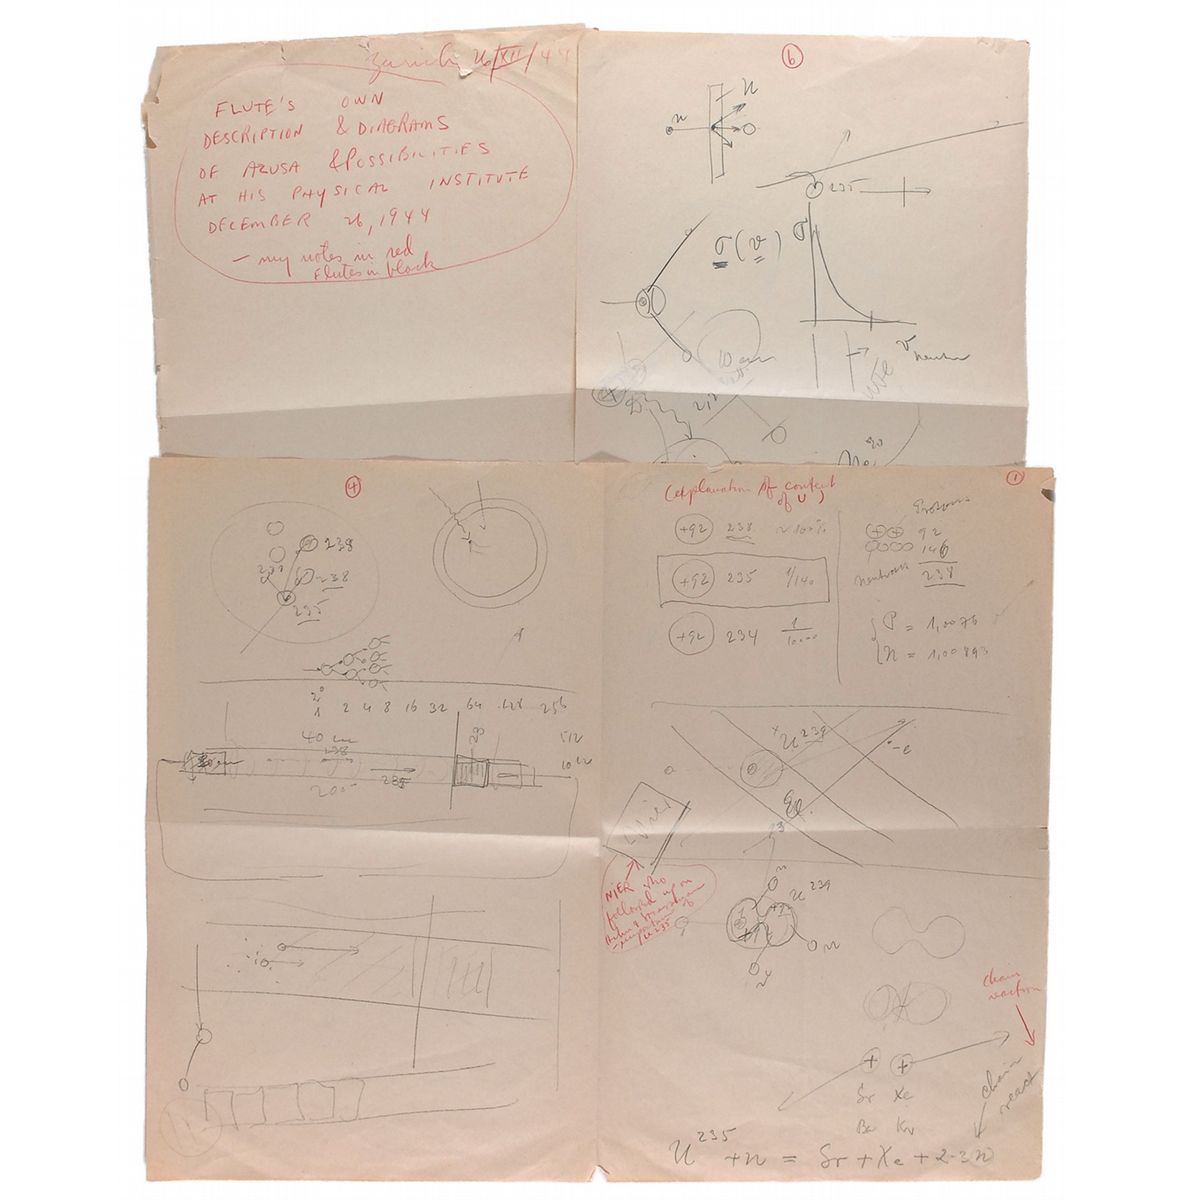 Zurich 26/XII/44
FLUTE'S OWN
DESCRIPTION & DIAGRAMS
OF AZUSA & POSSIBILITIES
AT HIS PHYSICAL INSTITUTE
DECEMBER 26, 1944
- my notes in red
Flutes in black
6
n
n
235
σ(v)
σ
v neutron
10 cm
4
238
238
238
235
2⁰
1 2 4 8 16 32 64 128 256
512
40 cm
238
235
200
1
(explanation of content
of U)
+92 238 ~100%
+92 235 1/140
+92 234 1/10000
Protons
92
146
neutrons
238
P = 1,0076
n = 1,00893
U 239
-e
Nier
NIER who
followed up on
Hahn &
U 235
n
U 239
n
chain
reaction
+ +
Sr Xe
Ba Kr
chain
react
U 235 + n = Sr + Xe + 2-3n